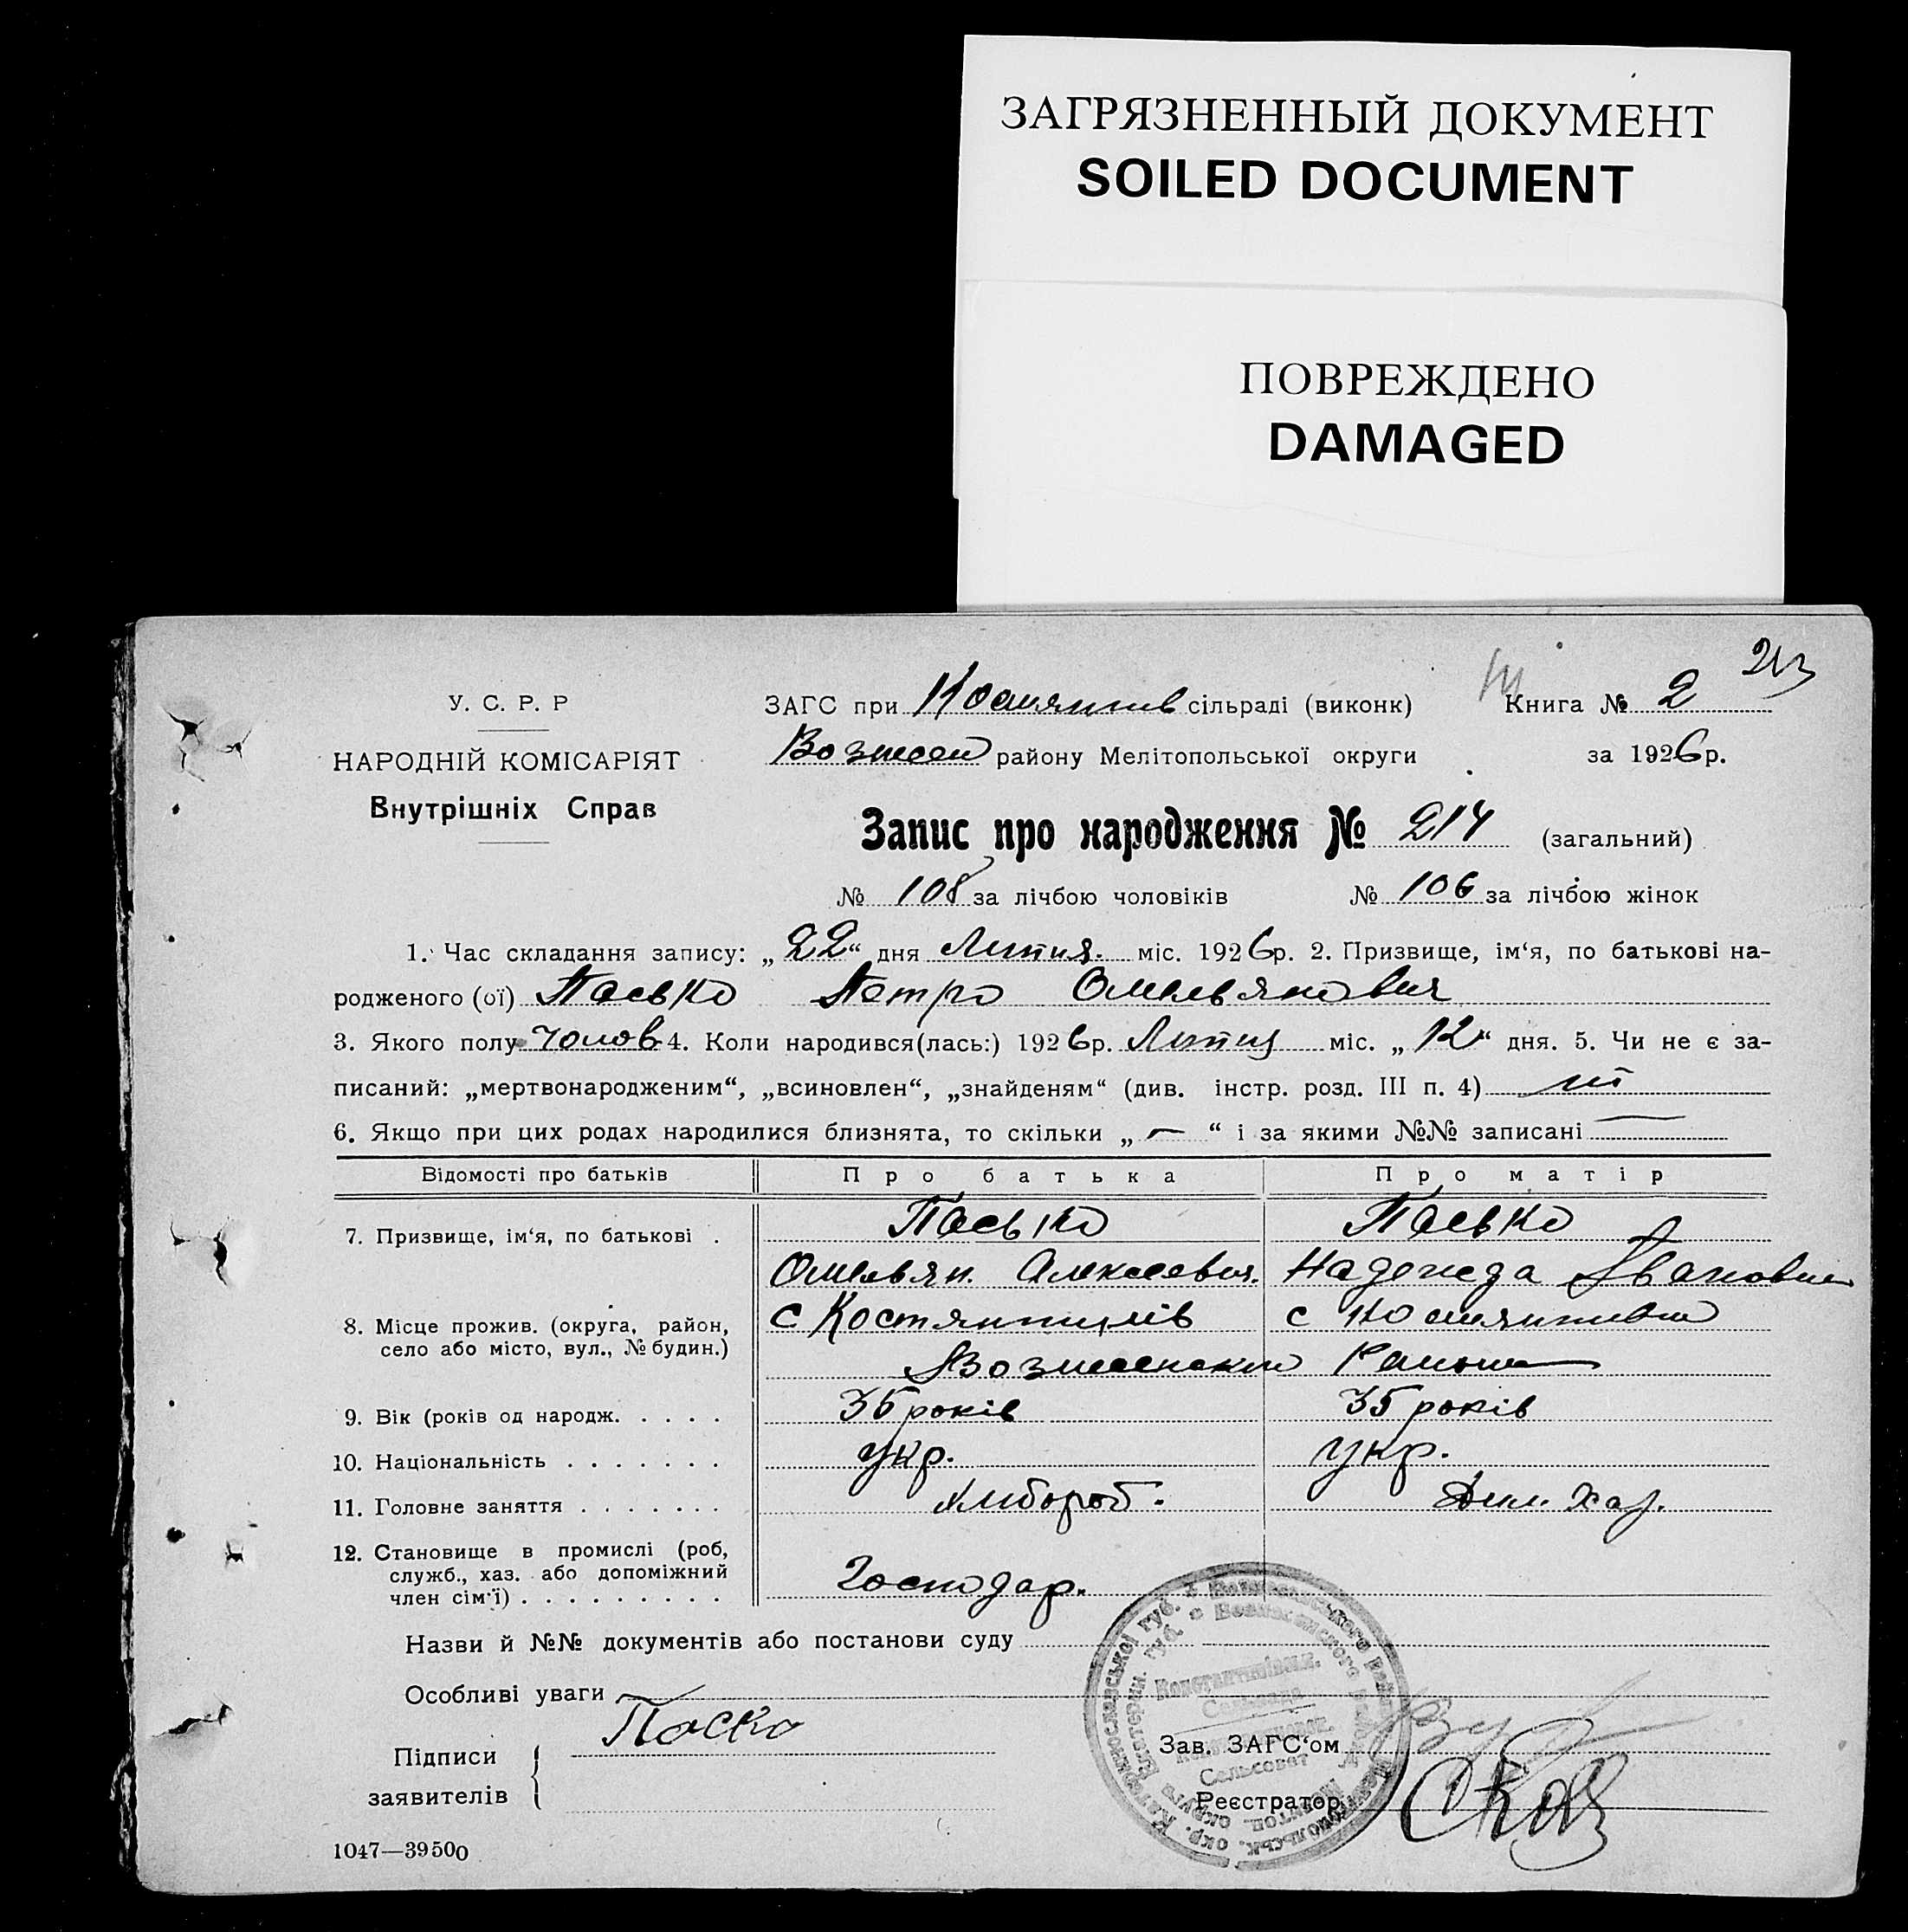 ЗАГРЯЗНЕННЫЙ ДОКУМЕНТ
SOILED DOCUMENT
ПОВРЕЖДЕНО
DAMAGED
213
У. С. Р. Р
НАРОДНІЙ КОМІСАРІЯТ
Внутрішніх Справ
ЗАГС при Костянтив сільраді (виконк) Книга № 2
Вознесен району Мелітопольської округи за 1926 р.
Запис про народження № 214 (загальний)
№ 108 за лічбою чоловіків № 106 за лічбою жінок
1. Час складання запису: „22“ дня Липня. міс. 1926 р. 2. Призвище, ім‘я, по батькові на-
родженого (ої) Пасько Петро Омельянович
3. Якого полу Чолов 4. Коли народився(лась:) 1926 р. Липня міс. „12“ дня. 5. Чи не є за-
писаний: „мертвонародженим“, „всиновлен“, „знайденям“ (див. інстр. розд. III п. 4) ні
6. Якщо при цих родах народилися близнята, то скільки „ — “ і за якими №№ записані —
Відомості про батьків Про батька Про матір
7. Призвище, ім‘я, по батькові . Пасько Пасько
Омельян. Алексеевич. Надежда Ивановна
8. Місце прожив. (округа, район, село або місто, вул., № будин.) с Костянтинів с Костянтивка
Вознесенського Району
9. Вік (років од народж. . . . . 35 років 35 років
10. Національність . . . . . . . укр. укр.
11. Головне заняття . . . . . . . хлибороб. Дом. Хаз.
12. Становище в промислі (роб, служб., хаз. або допоміжний член сім‘ї) . . . . . . . . . Господар.
Назви й №№ документів або постанови суду
Особливі уваги
Підписи
заявителів
Паско
Зав. ЗАГС‘ом
Реєстратор
Сельсовет
1047—39500